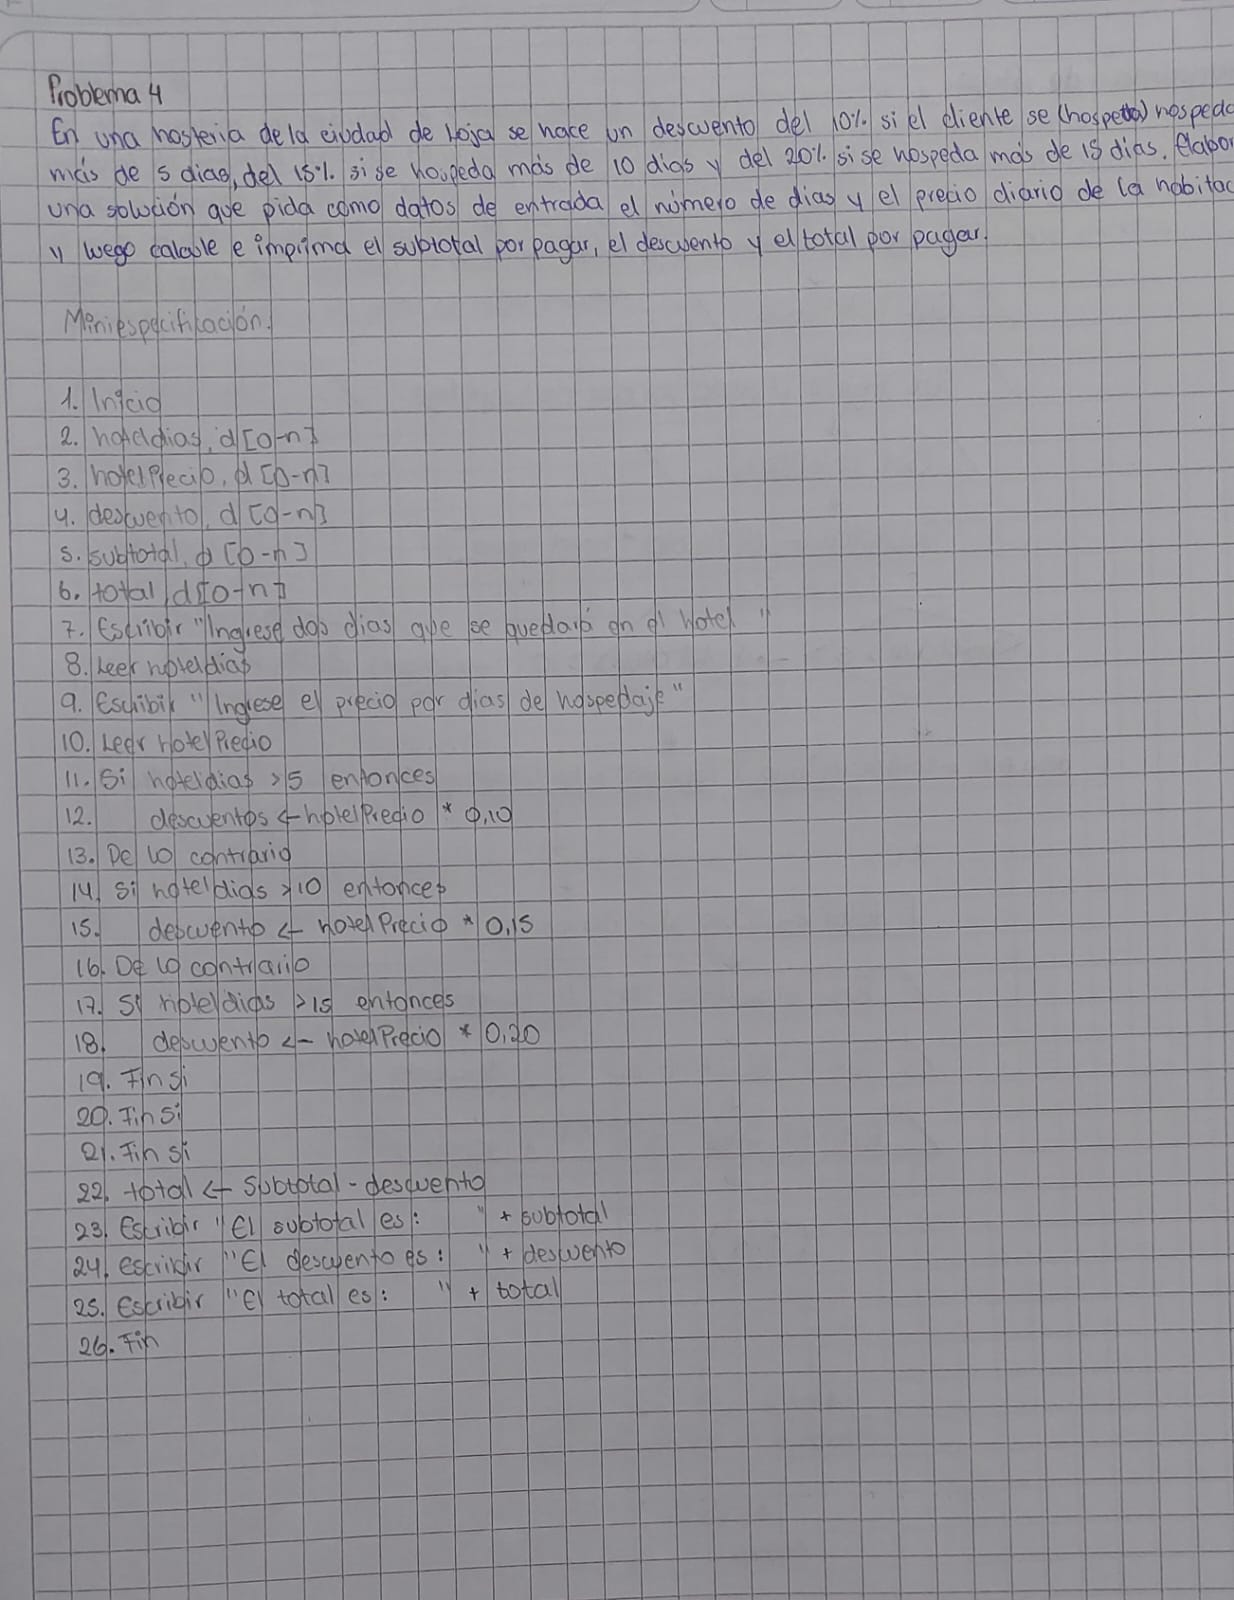 Problema 4
En una hosteria de la ciudad de Loja se hace un descuento del 10% si el cliente se (hospeda) hospeda
más de 5 dias, del 15% si se hospeda más de 10 dias y del 20% si se hospeda más de 15 dias. Elabor
una solución que pida como datos de entrada el número de dias y el precio diario de la habitac
y luego calcule e imprima el subtotal por pagar, el descuento y el total por pagar.
Miniespecificación.
1. Inicio
2. hoteldias, d [0-n]
3. hotelPrecio, d [0-n]
4. descuento, d [0-n]
5. subtotal, d [0-n]
6. total, d [0-n]
7. Escribir "Ingrese dos dias que se quedará en el hotel"
8. Leer hoteldias
9. Escribir "Ingrese el precio por dias de hospedaje"
10. Leer HotelPrecio
11. Si hoteldias >5 entonces
12. descuentos <- hotelPrecio * 0,10
13. De lo contrario
14. Si hoteldias >10 entonces
15. descuento <- hotelPrecio * 0,15
16. De lo contrario
17. Si hoteldias >15 entonces
18. descuento <- hotelPrecio * 0,20
19. Fin si
20. Fin si
21. Fin si
22. total <- Subtotal - descuento
23. Escribir "El subtotal es: " + subtotal
24. escribir "El descuento es: " + descuento
25. Escribir "El total es: " + total
26. Fin